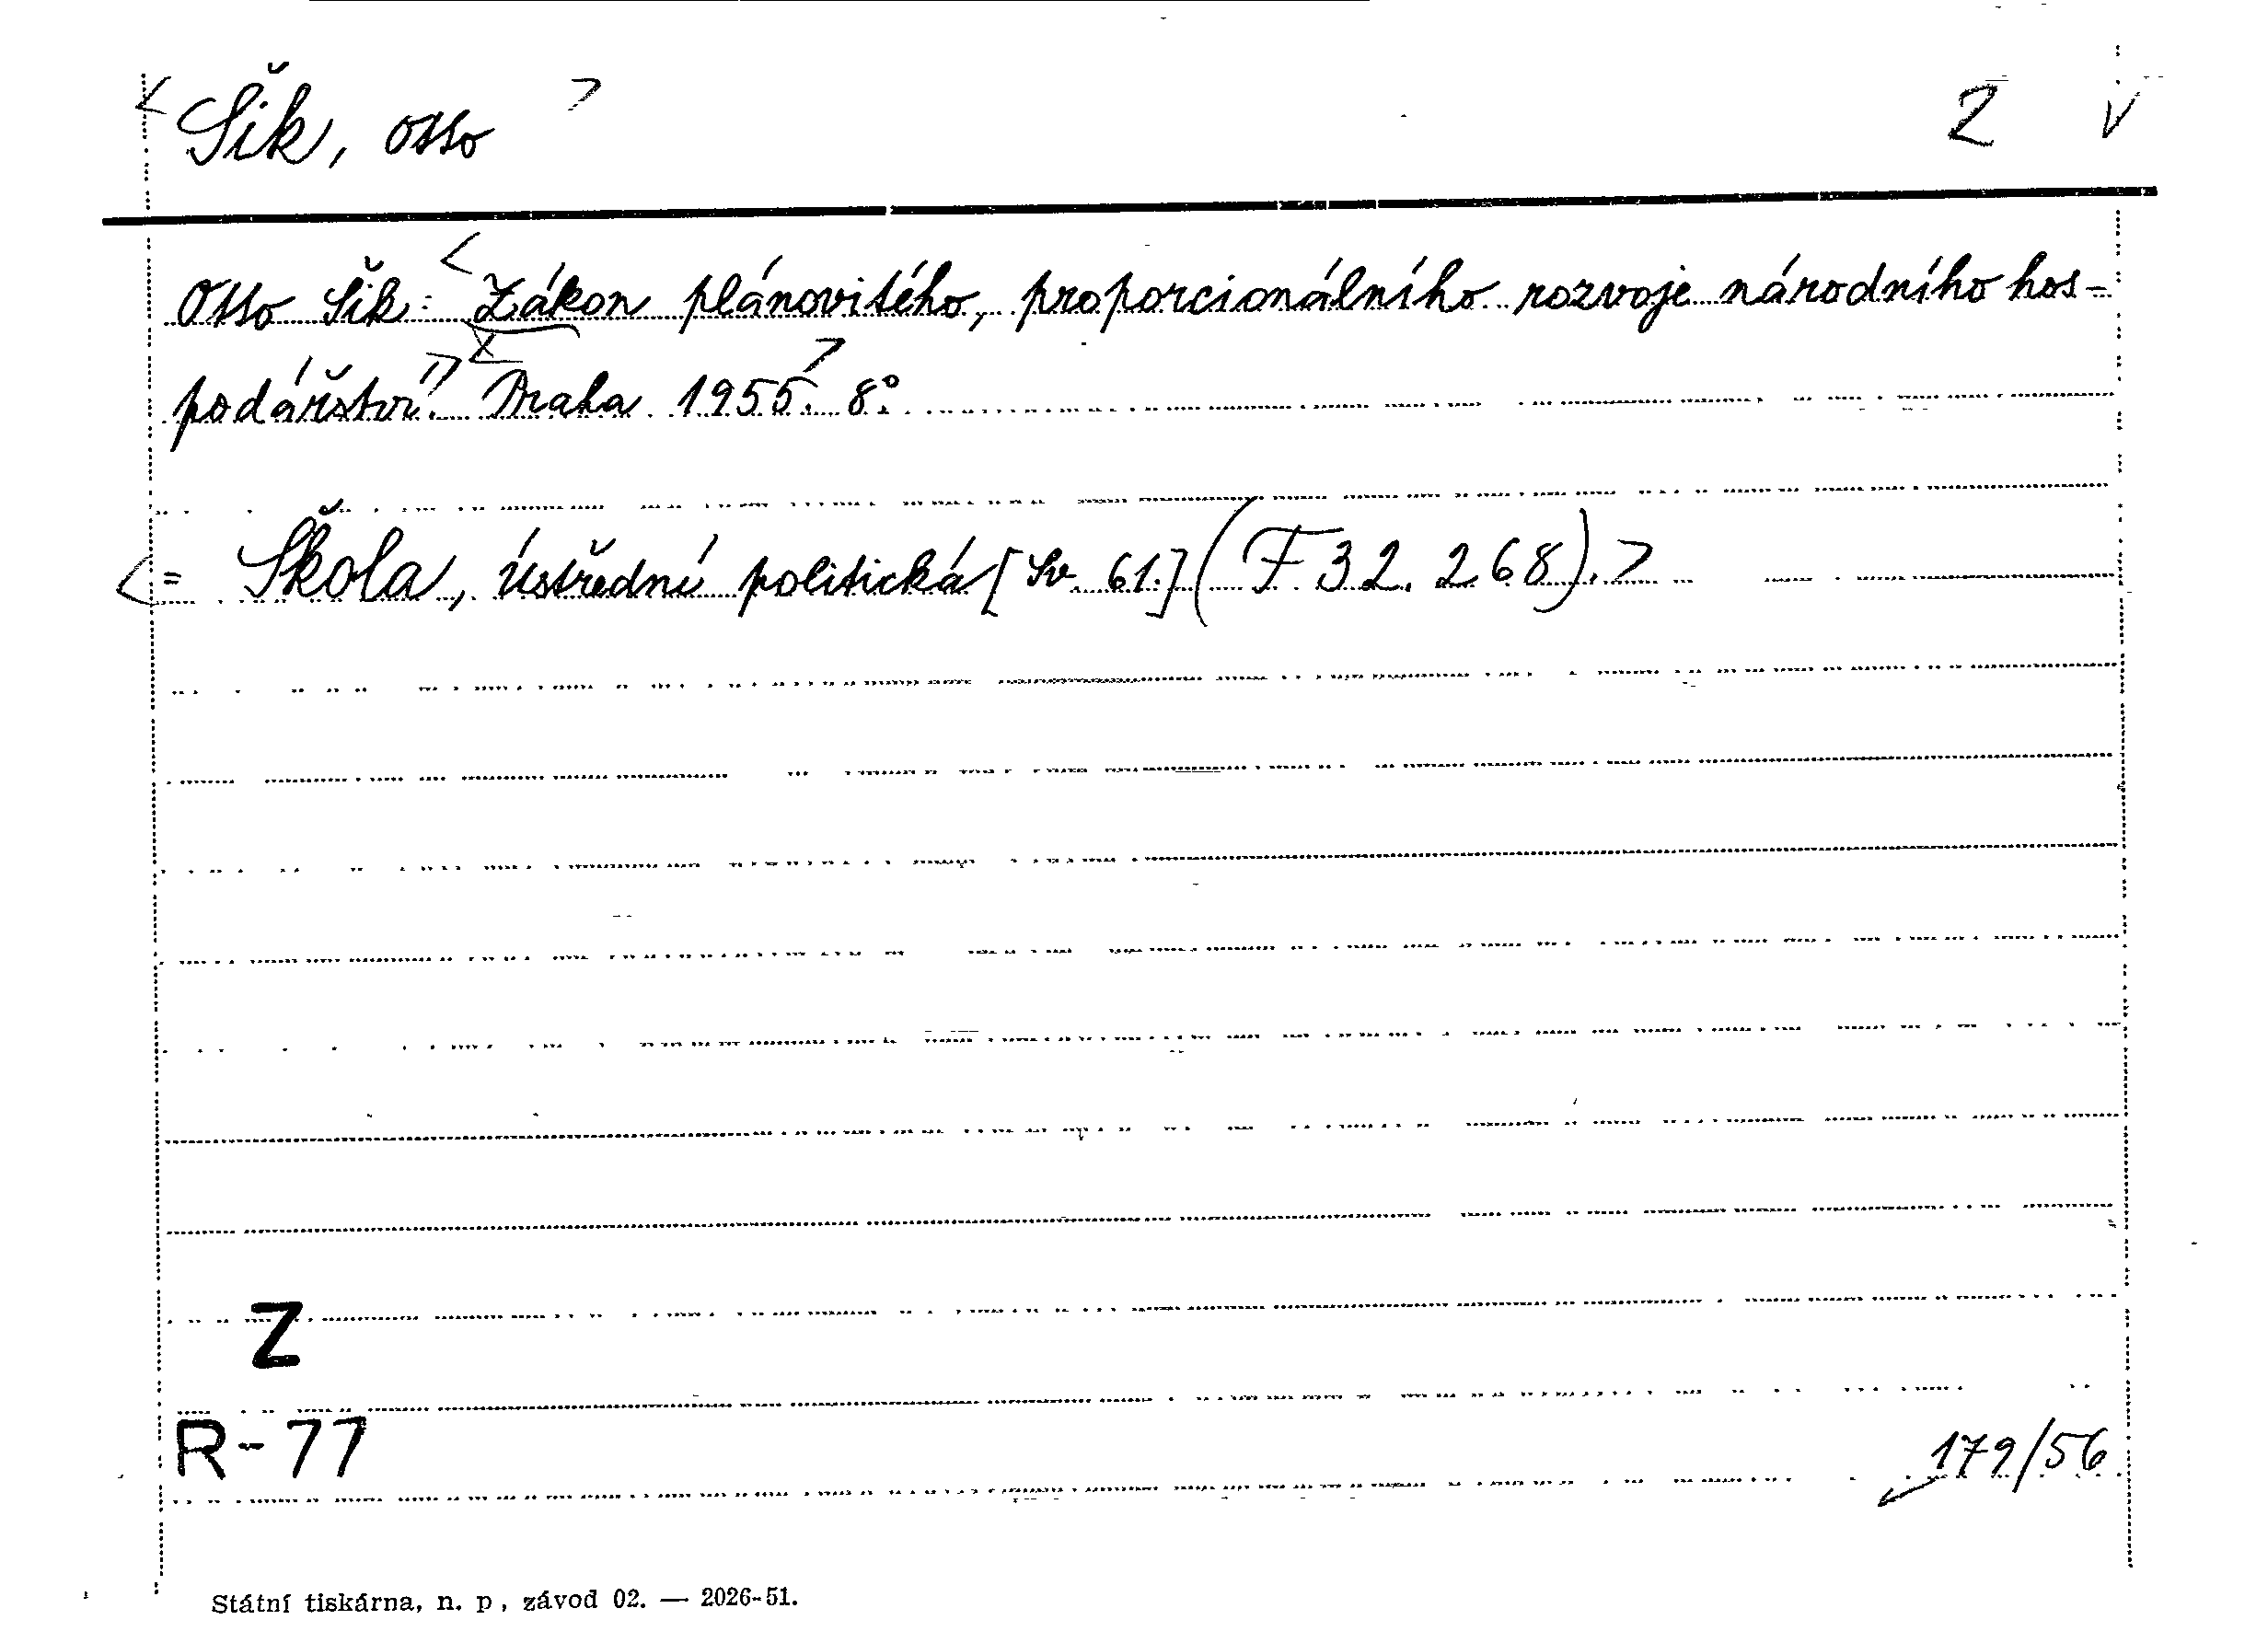 < Šik, Otto > 2 V
Otto Šik: < Zákon plánovitého, proporcionálního rozvoje národního hos-
podářství. Praha 1955. > 8°.
< = Škola, ústřední politická [Sv. 61.] (F 32.268). >
Z
R-77
179/56
Státní tiskárna, n. p, závod 02. — 2026-51.